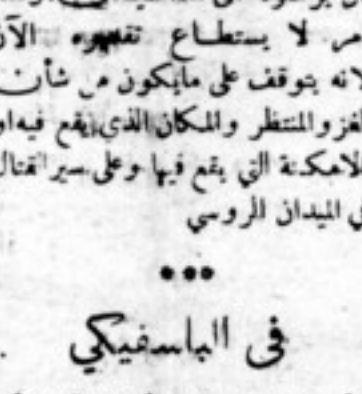 مر لا يستطاع تفهمه الآن
لانه يتوقف على مايكون من شأن
الغزو المنتظر والمكان الذي يقع فيه او
الامكنة التي يقع فيها وعلى سير القتال
في الميدان الروسي
•••
في الباسفيكي